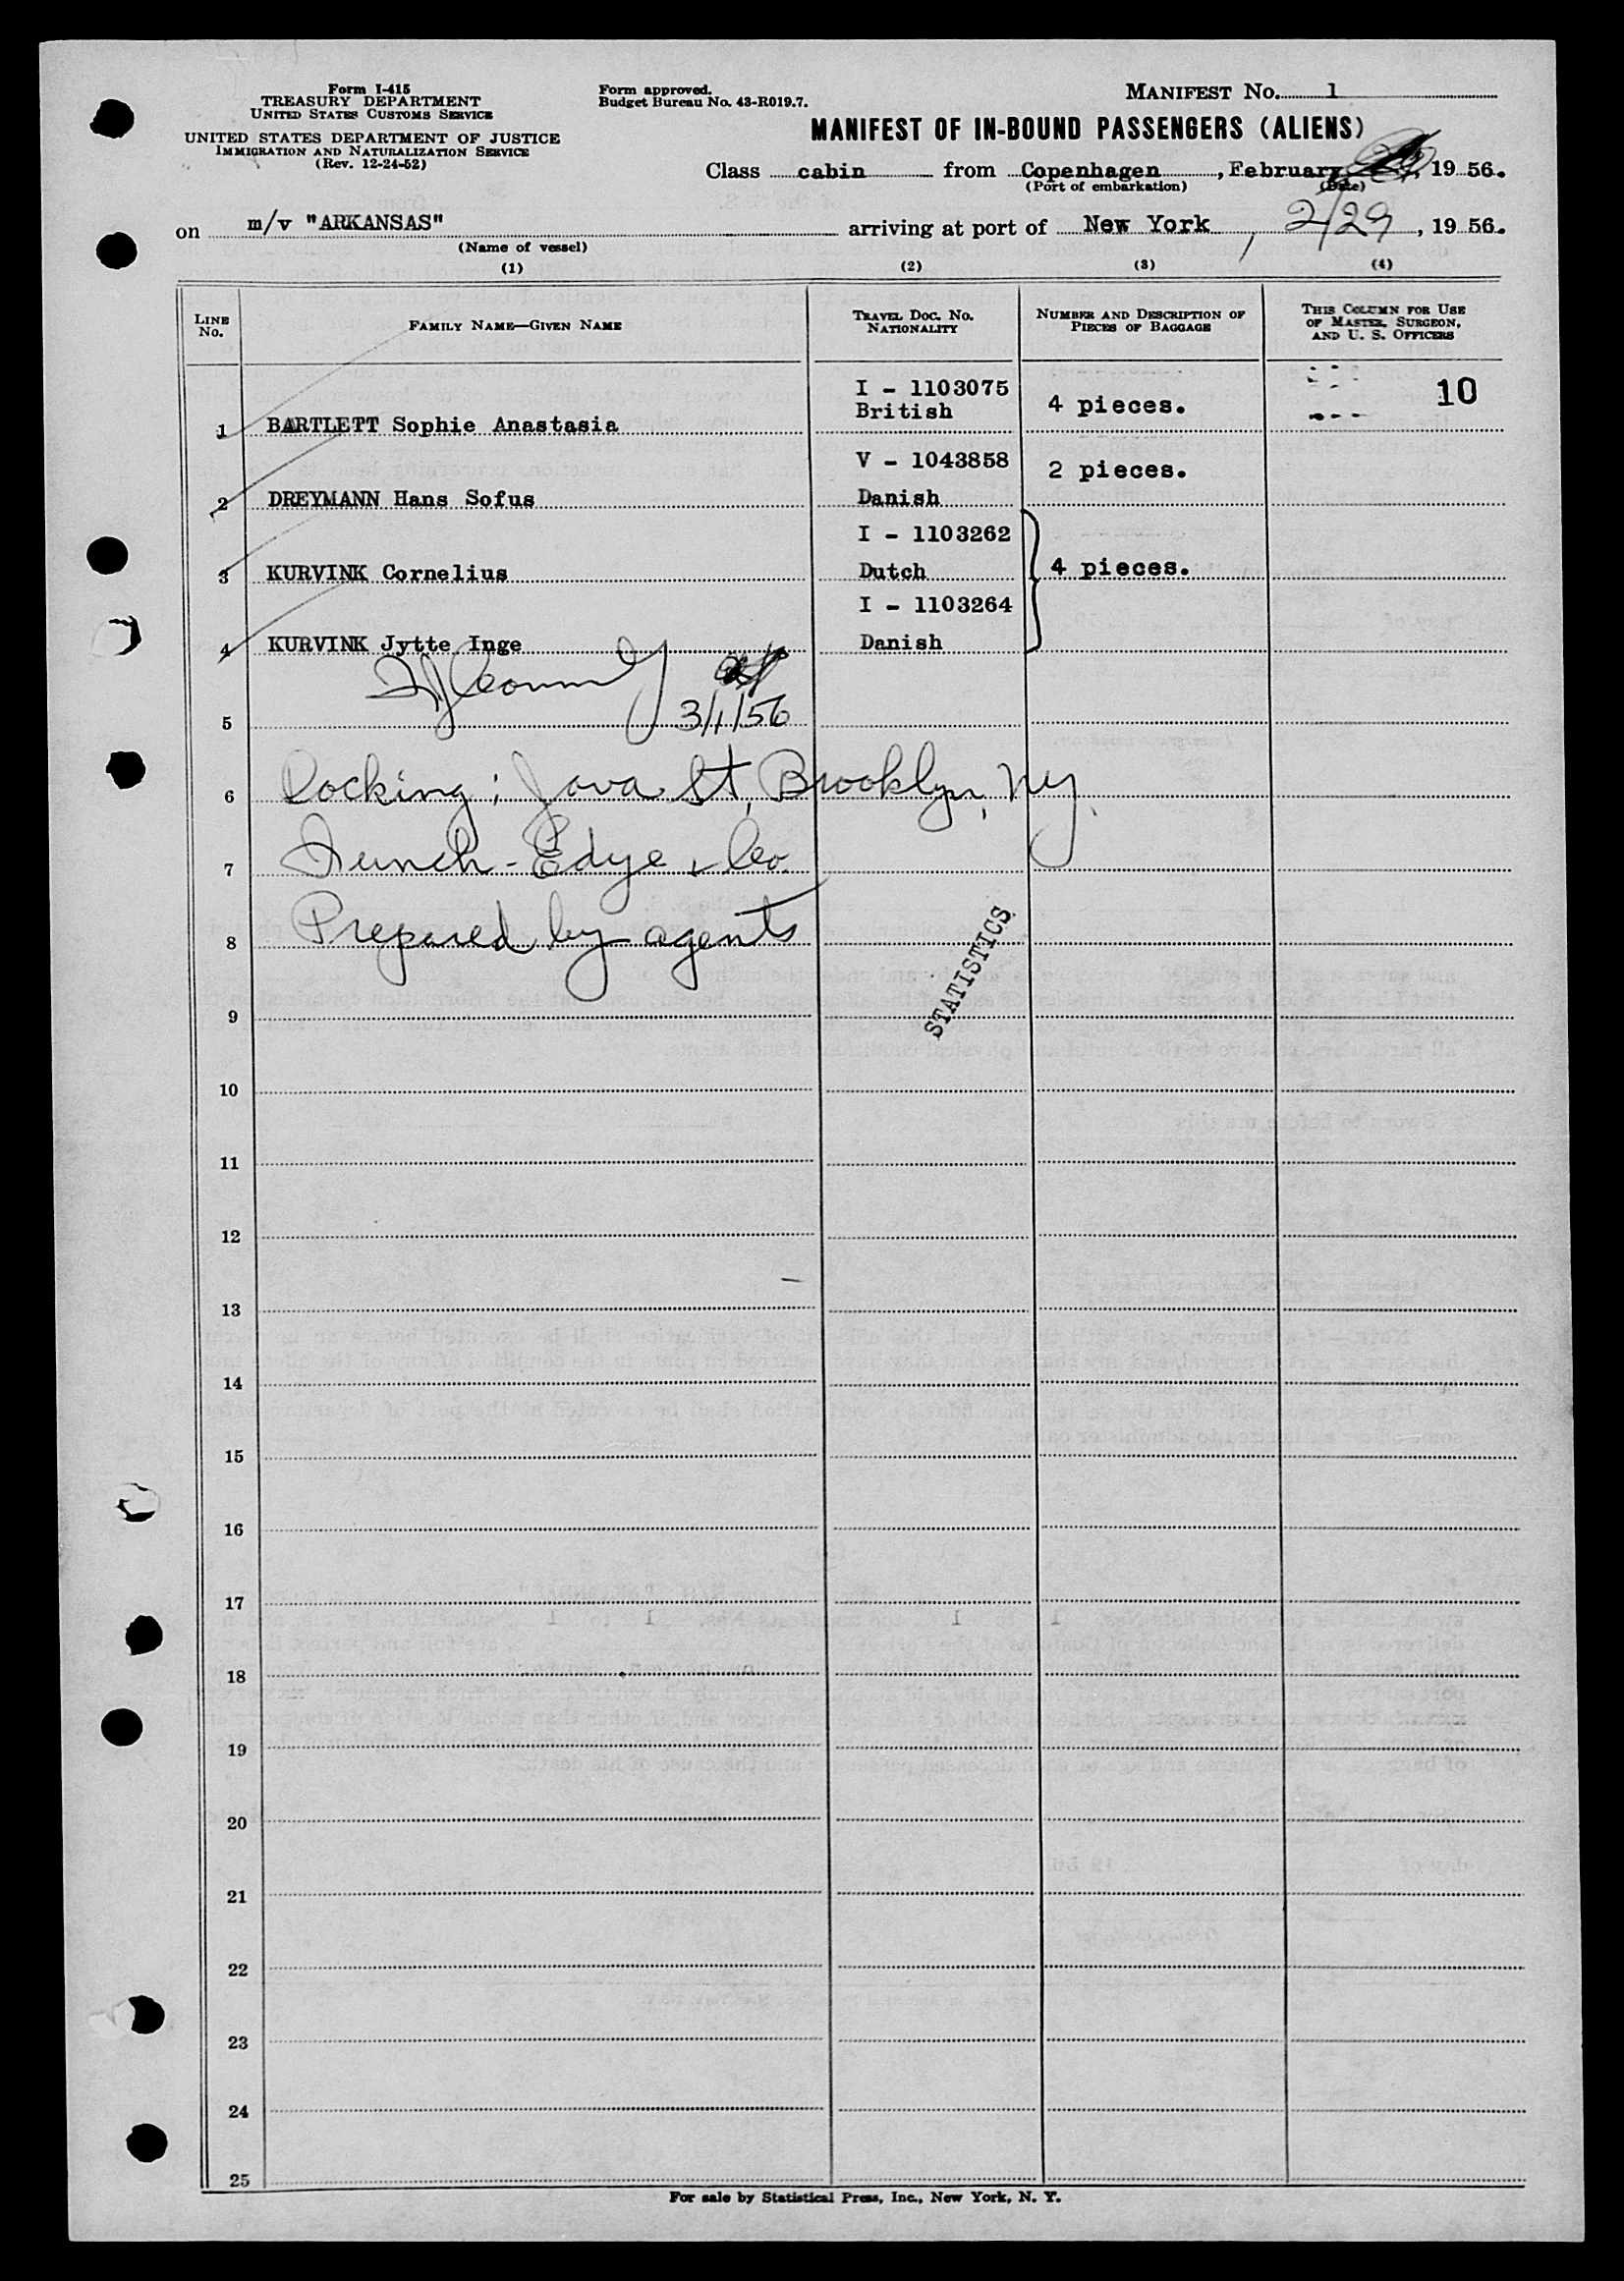 Form I-415
TREASURY DEPARTMENT
UNITED STATES CUSTOMS SERVICE
UNITED STATES DEPARTMENT OF JUSTICE
IMMIGRATION AND NATURALIZATION SERVICE
(Rev. 12-24-52)
Form approved.
Budget Bureau No. 43-R019.7.
MANIFEST No. 1
MANIFEST OF IN-BOUND PASSENGERS (ALIENS)
Class cabin from Copenhagen, February, 1956.
(Port of embarkation) (Date)
on m/v "ARKANSAS" arriving at port of New York, 2/29, 1956.
(Name of vessel)
(1) (2) (3) (4)
LINE No. FAMILY NAME—GIVEN NAME TRAVEL DOC. NO. NATIONALITY NUMBER AND DESCRIPTION OF PIECES OF BAGGAGE THIS COLUMN FOR USE OF MASTER, SURGEON, AND U. S. OFFICERS
I - 1103075 10
1 BARTLETT Sophie Anastasia British 4 pieces.
V - 1043858 2 pieces.
2 DREYMANN Hans Sofus Danish
I - 1103262
3 KURVINK Cornelius Dutch 4 pieces.
I - 1103264
4 KURVINK Jytte Inge Danish
5 3/1/56
6 Docking: Java St, Brooklyn, NY.
7 Funch-Edye & Co.
8 Prepared by agents
STATISTICS
9
10
11
12
13
14
15
16
17
18
19
20
21
22
23
24
25
For sale by Statistical Press, Inc., New York, N. Y.